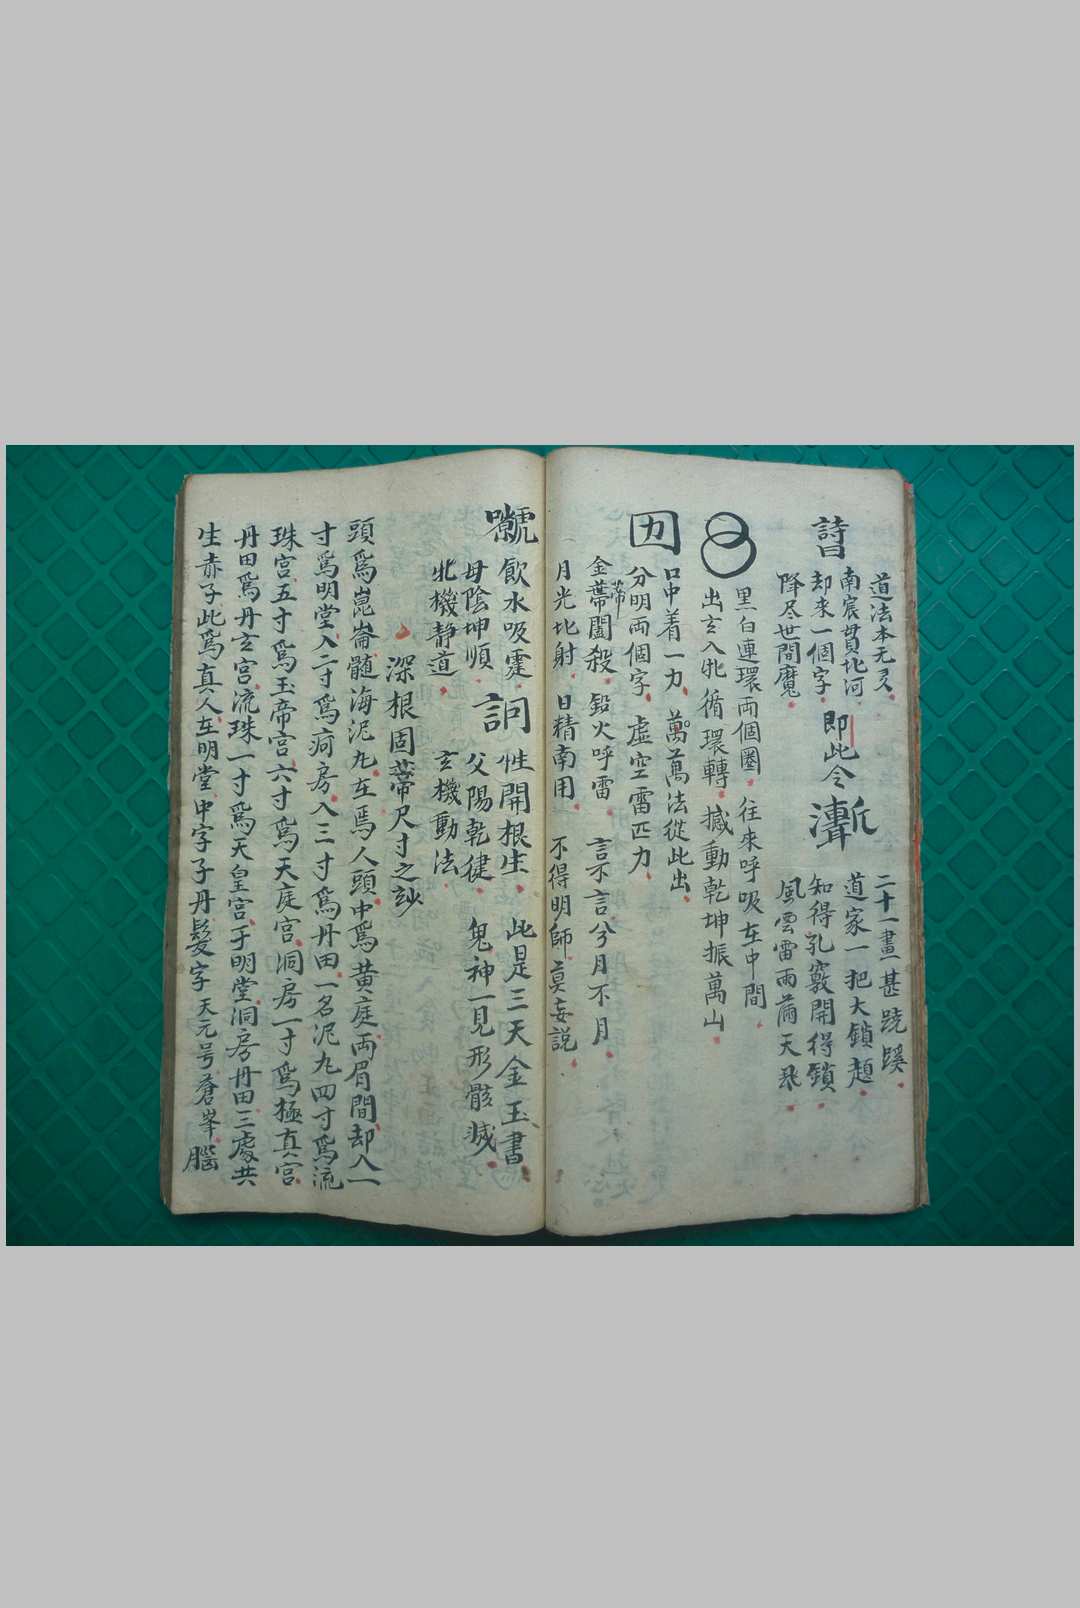 詩曰
道法本无多
南宸貫北河
却來一個字
降尽世間魔
即此令
二十一畫甚蹺蹊
道家一把大鎖
知得孔竅開得鎖
風雲雷雨滿天飛
黑白連環両個圈 往來呼吸在中間
出玄入牝循環轉 撼動乾坤振萬山
囡
口中着一力 萬萬法從此出
分明両個字 虚空雷匹力
金蒂闔殺 鉛火呼雷 言不言兮月不月
月光北射 日精南用 不得明師莫妄説
飲水吸霆 性開根生 此是三天金玉書
母陰坤順 父陽乾健 鬼神一見形骸滅
牝機静道 玄機動法
訶
深根固蒂尺寸之玅
頭爲崑崙髄海泥丸在焉人頭中爲黄庭両眉間却入一
寸爲明堂入二寸爲房入三寸爲丹田一名泥丸四寸爲流
珠宫五寸爲玉帝宫六寸爲天庭宫洞房一寸爲極真宫
丹田爲丹玄宫流珠一寸爲天皇宫于明堂洞房丹田三處共
生赤子此爲真人在明堂中字子丹髮字天元号蒼峯腦